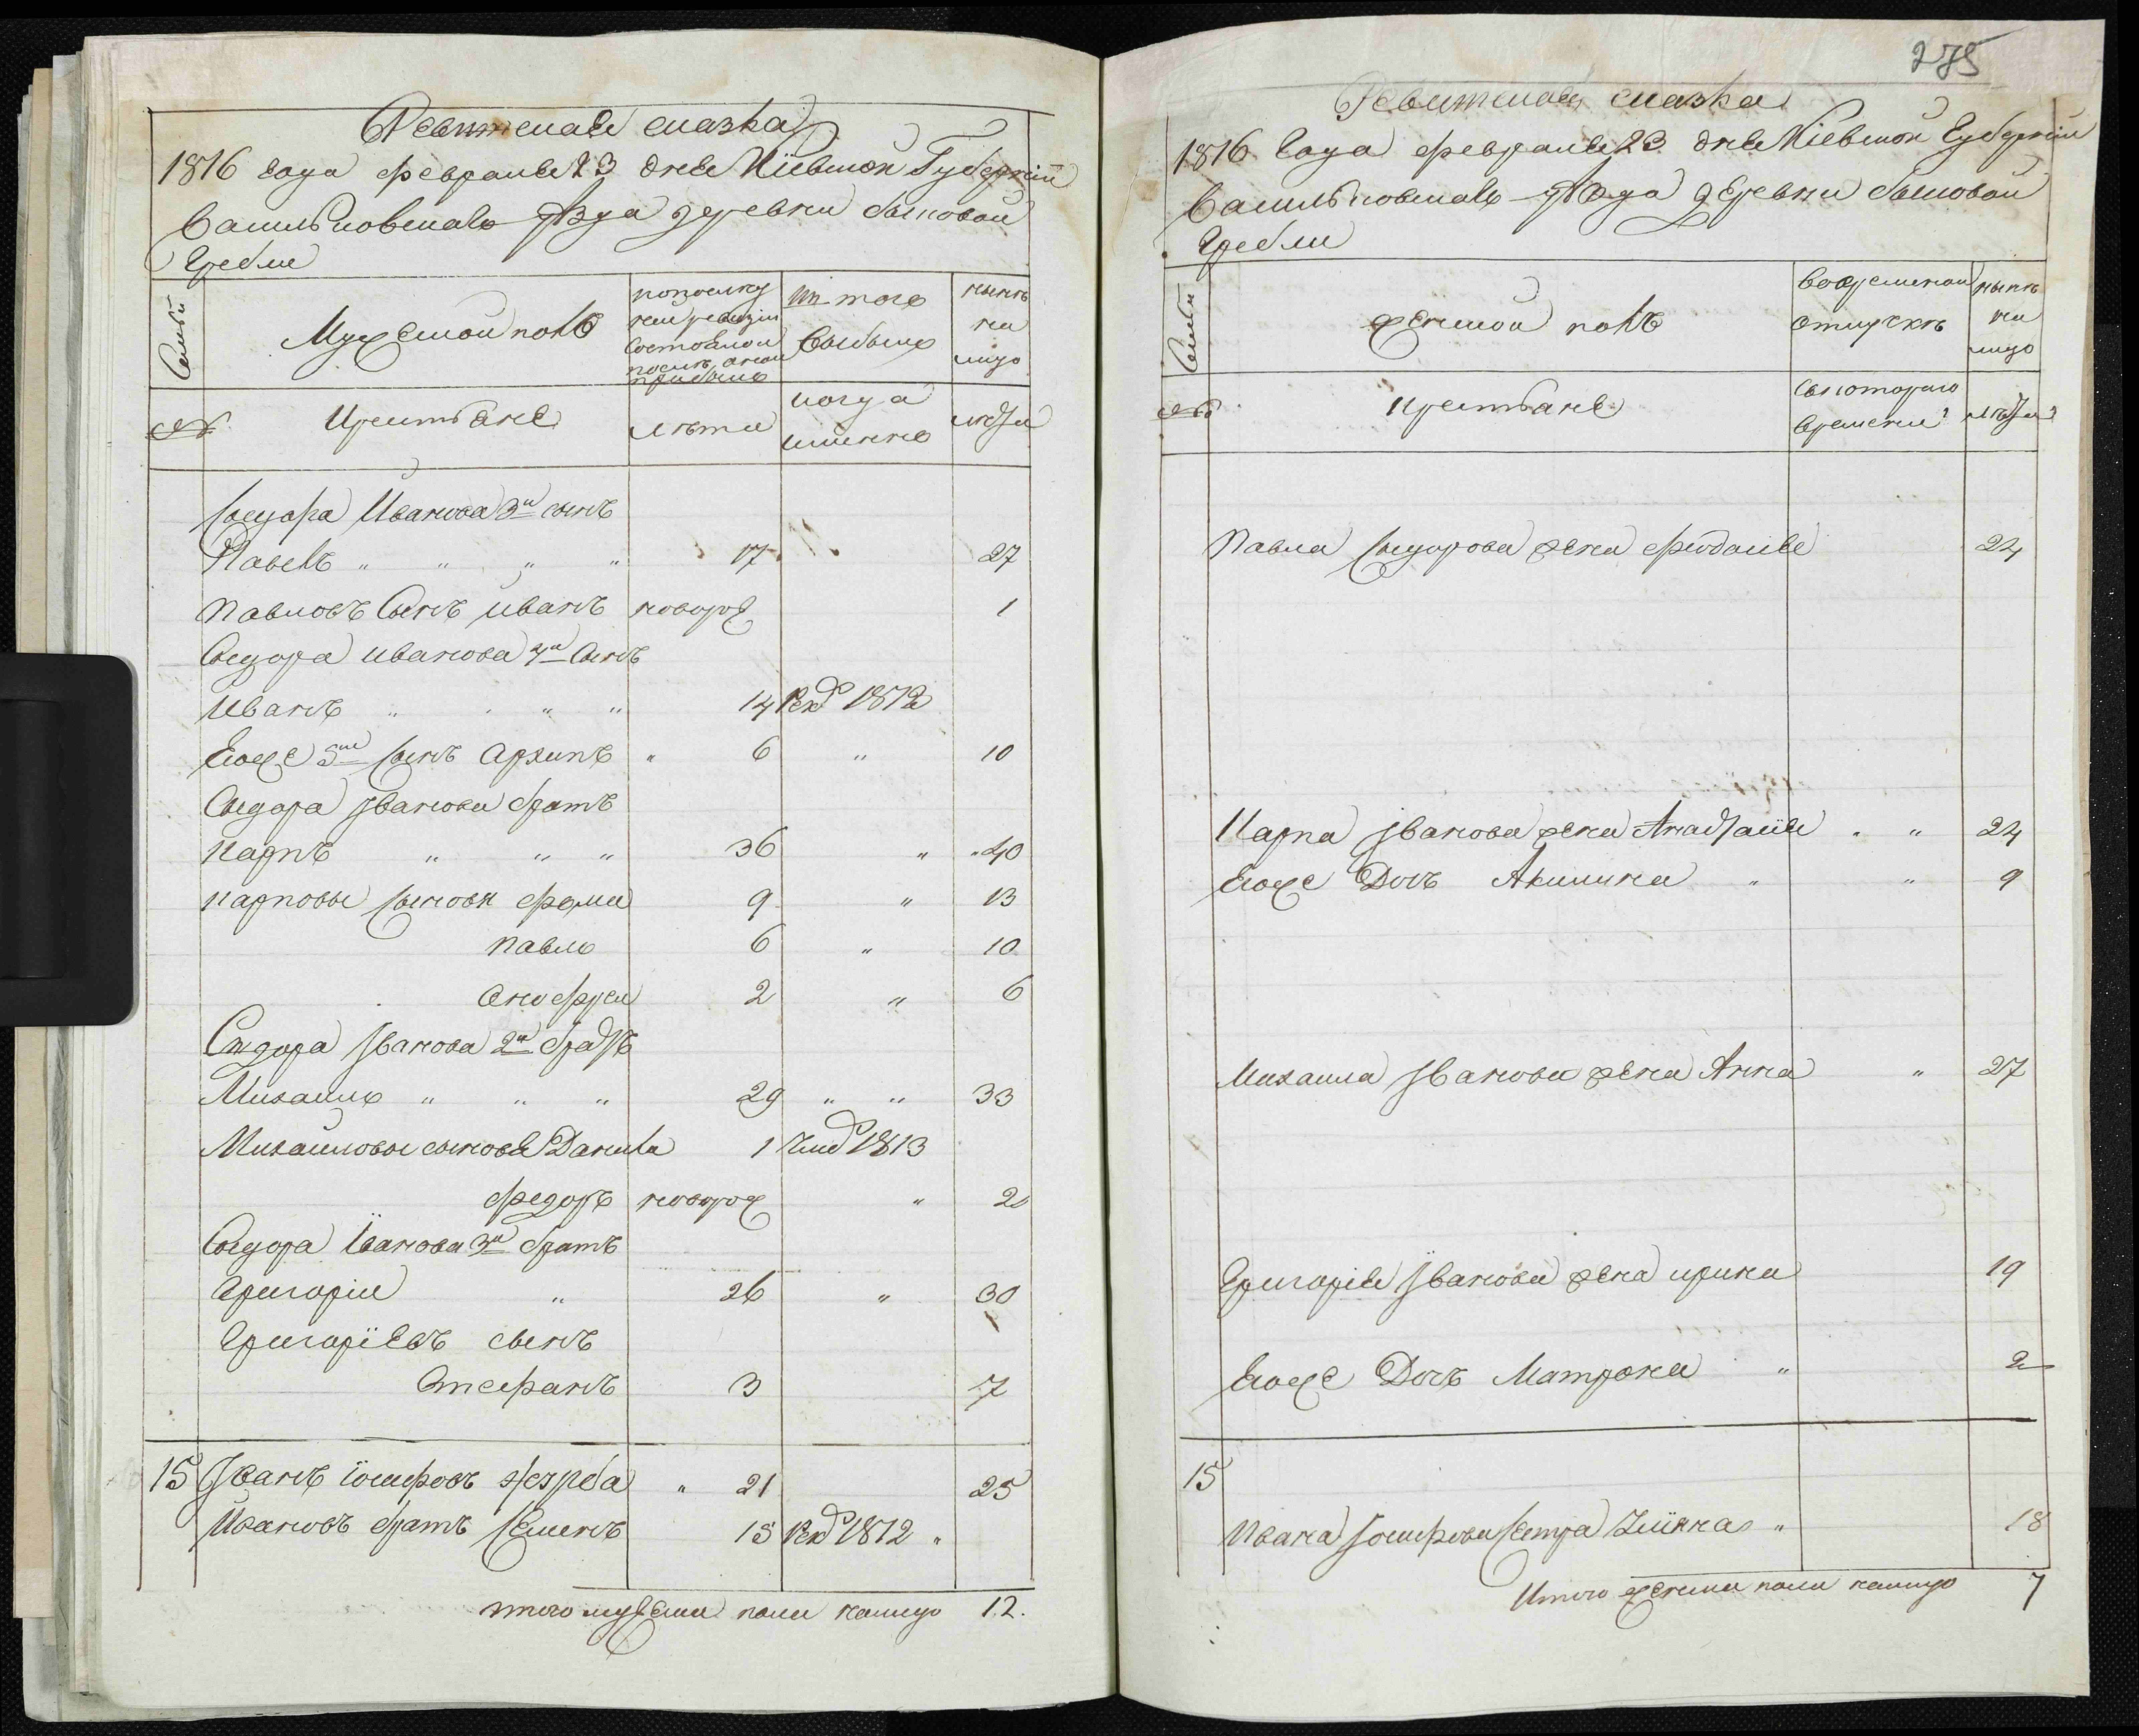 Ревижская сказка
1816 года февраля 23 дня Кіевской Губерніи
Васильковскаго уѣзда деревни Быковой
Гребли
Семьи
Мужеской полъ
по последней ревизіи состояло и после оной прибыло
Изъ того выбыло
нынѣ на лицо
№
Крестьяне
Лѣта
когда именно
лѣта
Сыдора Иванова 3й сынъ
Павелъ " " " " 17 27
Павловъ Сынъ Иванъ новорож 1
Сыдора Иванова 4й Сынъ
Иванъ " " " " 14 Рекр 1812
Егоже 5й Сынъ Архипъ " 6 " 10
Сыдора Іванова братъ
Карпъ " " " 36 " " 40
Карповы Сыновя Фома 9 " 13
Павло 6 " 10
Онофрей 2 " 6
Сидора Іванова 2й братъ
Михайло " " " 29 " " 33
Михайловы сыновя Данила 1 Умр 1813
Федоръ новорож " 2
Сыдора Іванова 3й братъ
Григорій " 26 " 30
Григоріевъ сынъ
Стефанъ 3 7
15 Іванъ Іосифовъ " 21 25
Ивановъ братъ Семенъ 15 Рекр 1812 "
Итого мужеска пола налицо 12.
275
Ревижская сказка
1816 года февраля 23 дня Кіевской Губерніи
Васильковскаго уѣзда деревни Быковой
Гребли
Семьи
Женской полъ
Во временной отлучкѣ
нынѣ на лицо
№
Крестьяне
Съ котораго времени
лѣта
Павла Сыдорова жена Феодосія 24
Карпа Іванова жена Анастасія " " 24
Егоже Дочь Акилина " " 9
Михайла Іванова жена Анна " 27
Григорія Іванова жена Ирина 19
Егоже Дочь Матрона " 2
15
Ивана Іосифова Сестра " 18
Итого женска пола налицо 7